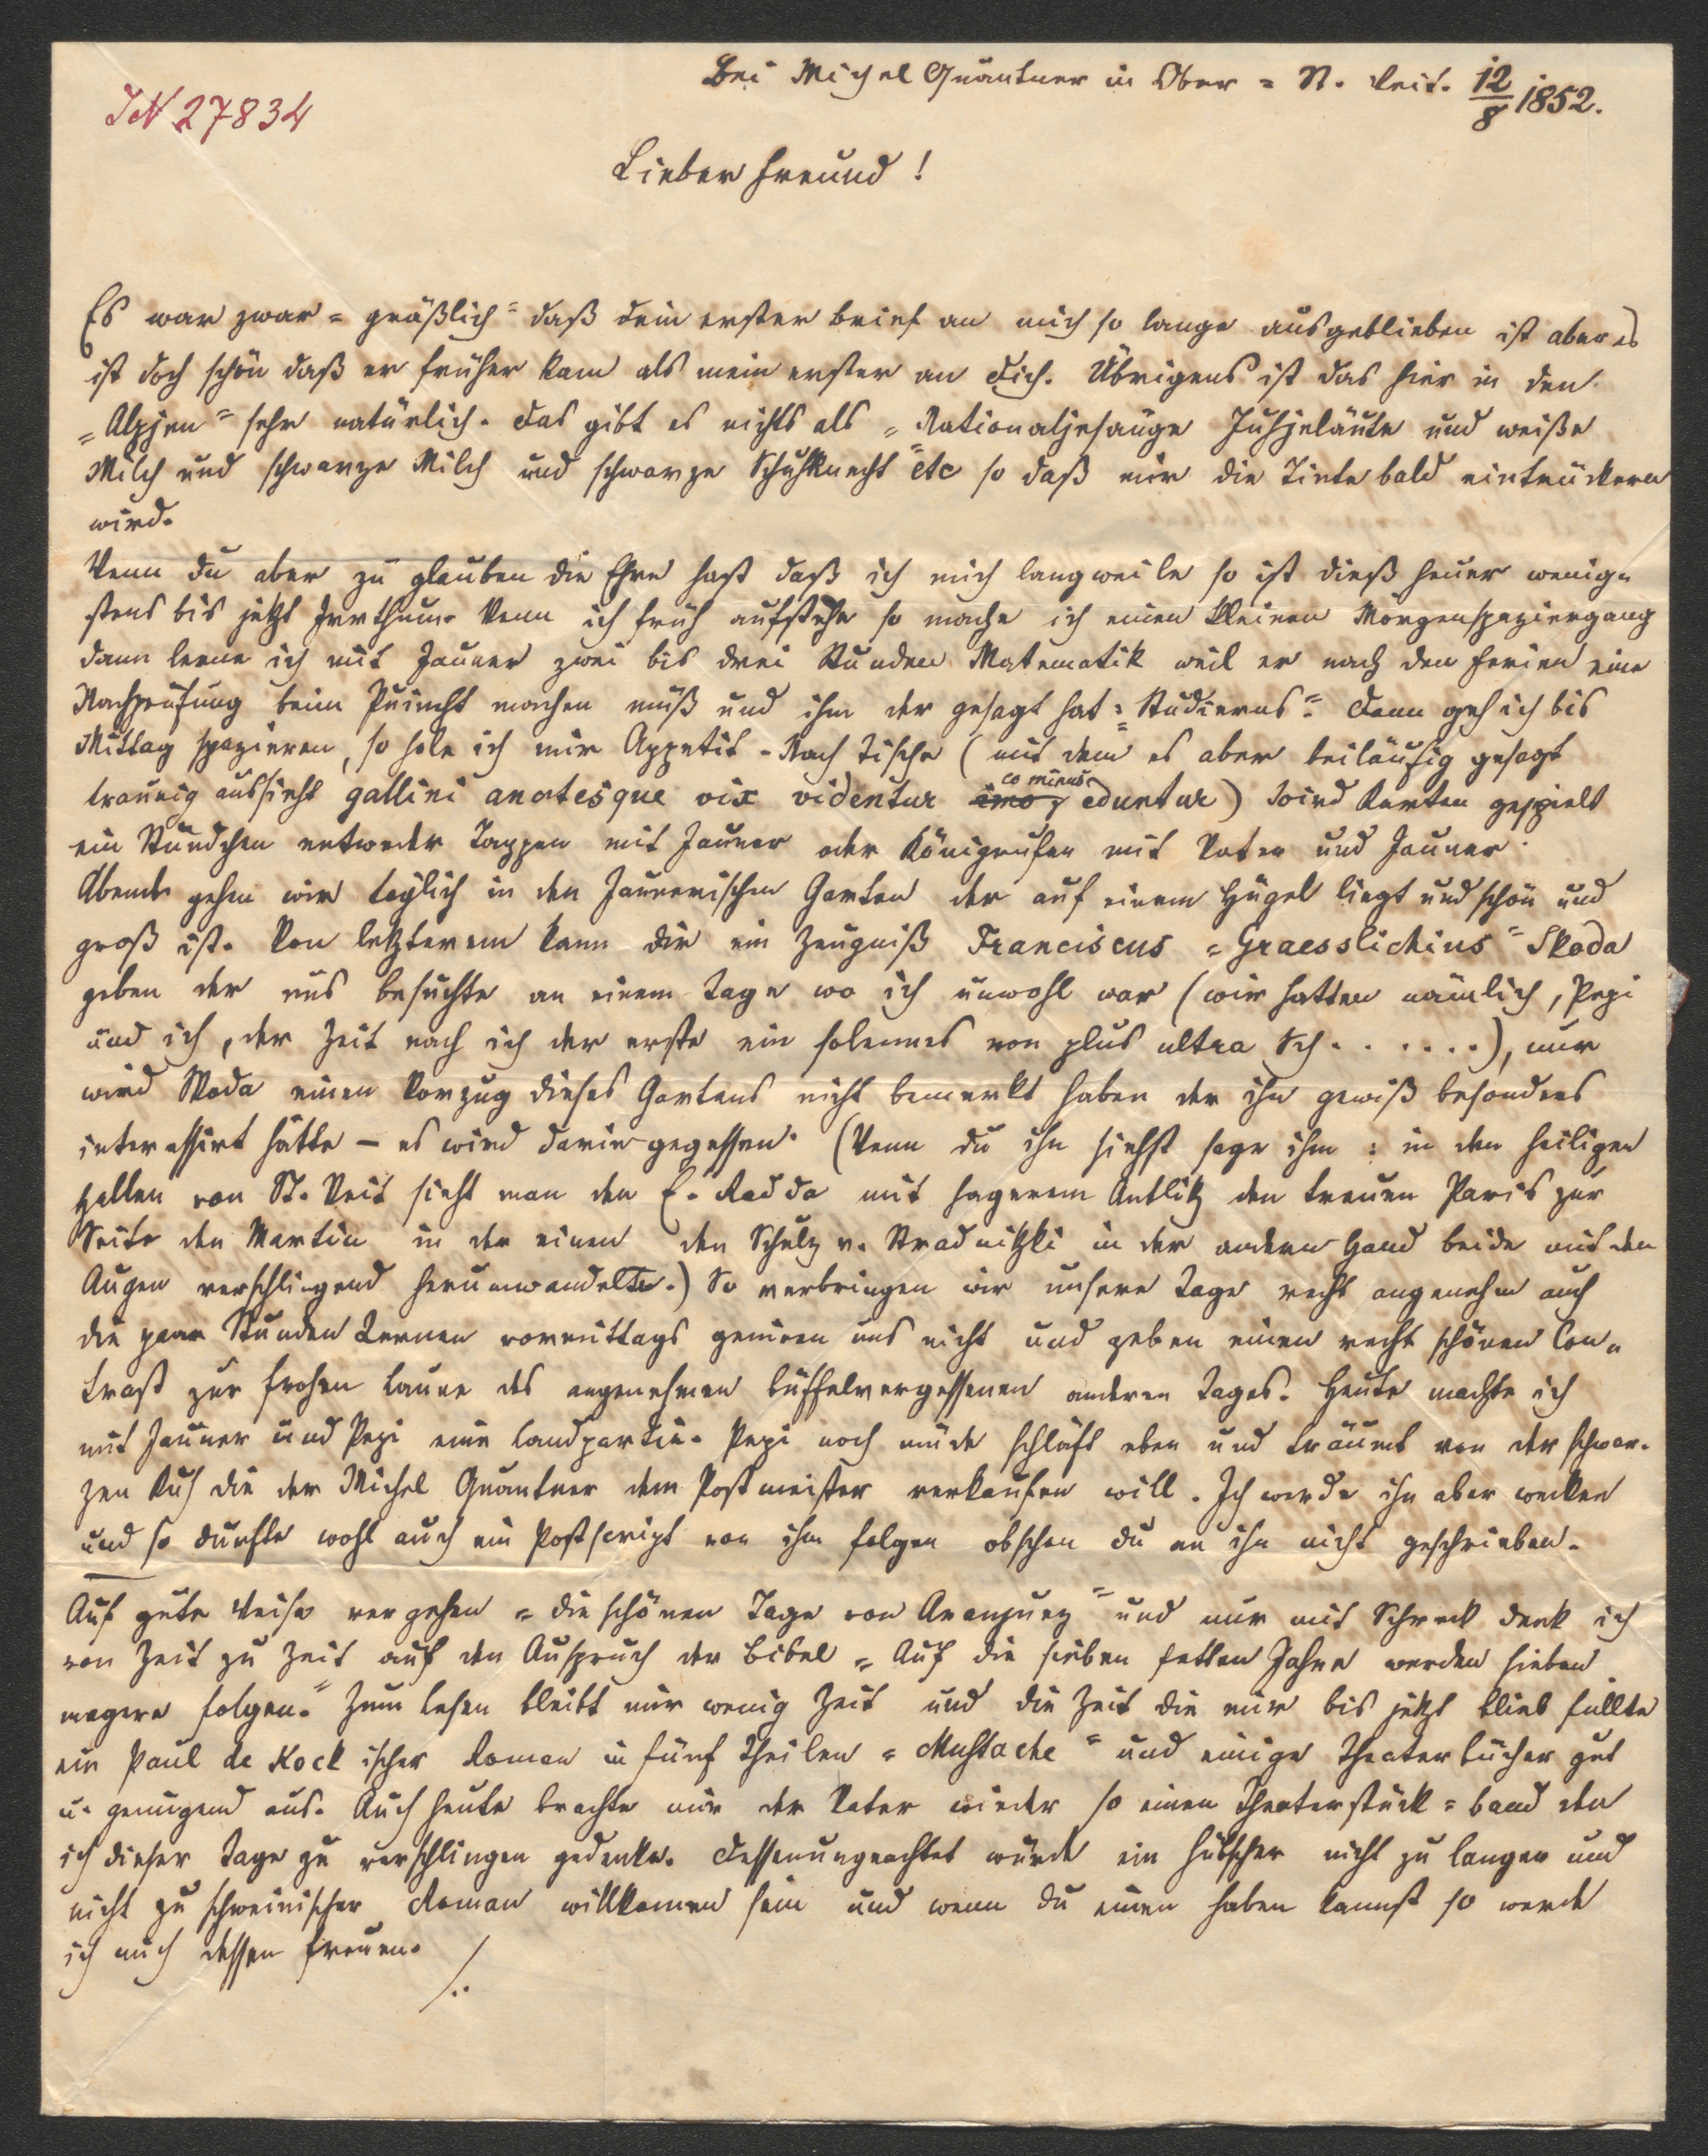 Bei Michel Quantner in Ober = St. Veit. 12/8 1852.
IN 27834
Lieber Freund!
Es war zwar „gräßlich“ daß dein erster Brief an mich so lange ausgeblieben ist aber es
ist doch schön daß er früher kam als mein erster an Dich. Übrigens ist das hier in den
„Alpjen“ sehr natürlich. Das gibt es nichts als „Nationaljesänge Kuhjeläute und weiße
Milch und schwarze Milch und schwarze Kuh Knecht“ etc so daß mir die Tinte bald eintrücknen
wird.
Wenn du aber zu glauben die Ehre hast daß ich mich langweile so ist dieß heuer wenig„
stens bis jetzt Irrthum. Wenn ich früh aufstehe so mache ich einen kleinen Morgenspaziergang
dann lerne ich mit Jauner zwei bis drei Stunden Matematik weil er nach den Ferien eine
Nachprüfung beim machen muß und ihm der gesagt hat: „Studierns“. Dann geh ich bis
Mittag spazieren, so hole ich mir Appetit. Nach Tische (mit dem es aber beiläufig gesagt
traurig aussieht gallini anatesque vix videntur co minus eduntur) wird Karten gespielt
ein Stündchen entweder Tappen mit Jauner oder Königrufen mit Vater und Jauner.
Abends gehen wir täglich in den Jaunerischen Garten der auf einem Hügel liegt und schön und
groß ist. Von letzterem kann dir ein Zeugniß Franciscus „Graesslichius“ Skoda
geben der uns besuchte an einem Tage wo ich unwohl war (wir hatten nämlich, Pepi
und ich, der Zeit nach ich der erste ein solennes non plus ultra Sch. . . . . .), nur
wird Skoda einen Vorzug dieses Gartens nicht bemerkt haben der ihn gewiß besonders
interessirt hätte – es wird darin gegessen. (Wenn du ihn siehst sage ihm: in den heiligen
Hallen von St. Veit sieht man den E. Radda mit hagerem Antlitz den treuen Paris zur
Seite den Martin in der einen den Schulz v. Stradnitzki in der andern Hand beide mit den
Augen verschlingend herumwandeln.) So verbringen wir unsere Tage recht angenehm auch
die paar Stunden Lernen vormittags geniren uns nicht und geben einen recht schönen Con„
trast zur frohen Laune des angenehmen büffelvergessenen anderen Tages. Heute machte ich
mit Jauner und Pepi eine Landpartie. Pepi noch müde schläft eben und träumt von der schwar„
zen Kuh die der Michel Quantner dem Postmeister verkaufen will. Ich werde ihn aber wecken
und so durfte wohl auch ein Postscript von ihm folgen obschon du an ihn nicht geschrieben.
Auf gute Weise vergehen „die schönen Tage von Aranjuez“ und nur mit Schreck denk ich
von Zeit zu Zeit auf den Auspruch der Bibel „Auf die sieben fetten Jahre werden sieben
magere folgen.“ Zum Lesen bleibt mir wenig Zeit und die Zeit die mir bis jetzt blieb füllte
ein Paul de Kock ischer Roman in fünf Theilen „Mustache“ und einige Theaterbücher gut
u. genugend aus. Auch heute brachte mir der Vater wieder so einen Theaterstück=band den
ich dieser Tage zu verschlingen gedenke. Dessenungeachtet würde ein hübscher nicht zu langer und
nicht zu schweinischer Roman willkomen sein und wenn du einen haben kannst so werde
ich mich dessen freuen. /..